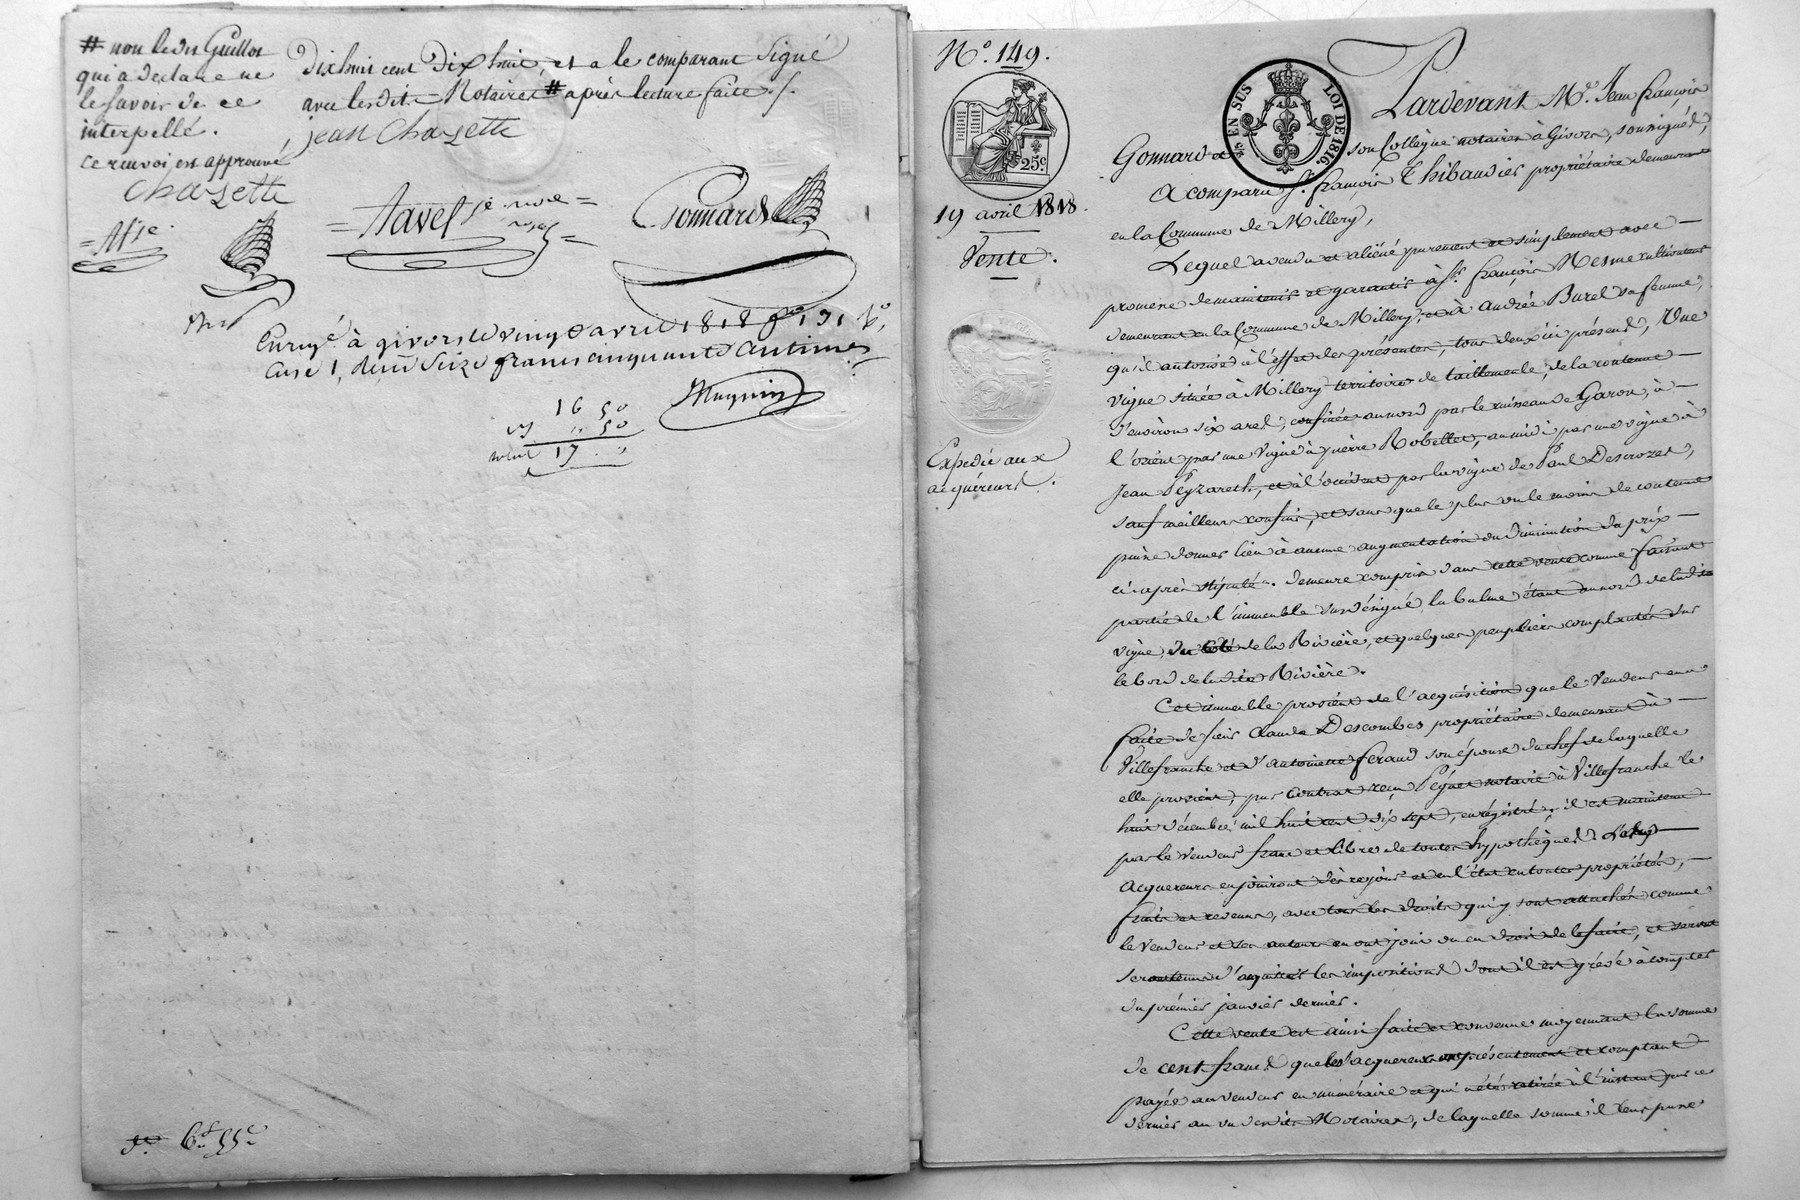 # non ledit Guillot
qui a déclaré ne
le savoir de ce
interpellé.
ce renvoi est approuvé
Chazette
dixhuit cent dix huit, et a le comparant signé
avec lesdits Notaires # après lecture faite ./.
jean Chazette
Favel
Gonnard
Enregé à givors le vingt avril 1818 fo 131 Vo,
Case 1, reçu Seize francs cinquante Centimes
Magnin
16 50
.. 50
total 17 . .
6f 55c
No. 149.
25c.
19 avril 1818.
Vente.
Expédié aux
acquéreurs.
EN SUS
LOI DE 1816.
Pardevant Me. Jean françois
Gonnard et son Collègue notaires à Givors, soussignés,
A comparu Sr. françois Thibaudier propriétaire demeurant
en la Commune de Millery,
Lequel a vendu et aliéné purement et simplement avec
promesse de maintenir et garantir à Sr. françois Nesme cultivateur
demeurant en la Commune de Millery, et à Andrée Burel sa femme,
qu'il autorise à l'effet des présentes, tous deux ici présens, Une
vigne située à Millery territoire de taillemerle, de la contenue
d'environ six ares, confinée au nord par le ruisseau de Garon, à
l'orient par une vigne à pierre Robellet, au midi par une vigne à
Jean Peyzareth, et à l'occident par la vigne de Paul Descrozes,
sauf meilleurs confins, et sans que le plus ou le moins de contenue
puisse donner lieu à aucune augmentation ou diminution du prix
ci après stipulé. demeure compris dans cette vente comme faisant
partie de l'immeuble susdésigné la balme étant au nord de ladite
vigne, du côté de la Rivière, et quelques peupliers complantés sur
le bord de ladite Rivière.
Cet immeuble provient de l'acquisition que le Vendeur en a
faite de sieur Claude Descombes propriétaire demeurant à
Villefranche et d'antoinette feraud son épouse du chef de laquelle
elle provient, par contrat reçu Péguet notaire à Villefranche le
huit décembre mil huit cent dix sept, enrégistré; il est maintenu
par le vendeur franc et libre de toutes hypothèques. Les
Acquereurs en jouiront dès ce jour et en l'état en toutes propriétés,
fruits et revenus, avec tous les droits qui y sont attachés comme
le vendeur et ses auteurs en ont joui ou eu droit de le faire, et seront
tenus d'acquitter les impositions dont il est grévé à compter
du prémier janvier dernier.
Cette vente est ainsi faite et convenue moyennant la somme
de cent francs que les acquereurs ont présentement et comptant
payée au vendeur en numéraire et qui a été retirée à l'instant par ce
dernier au vu desdits Notaires, de laquelle somme il leur passe